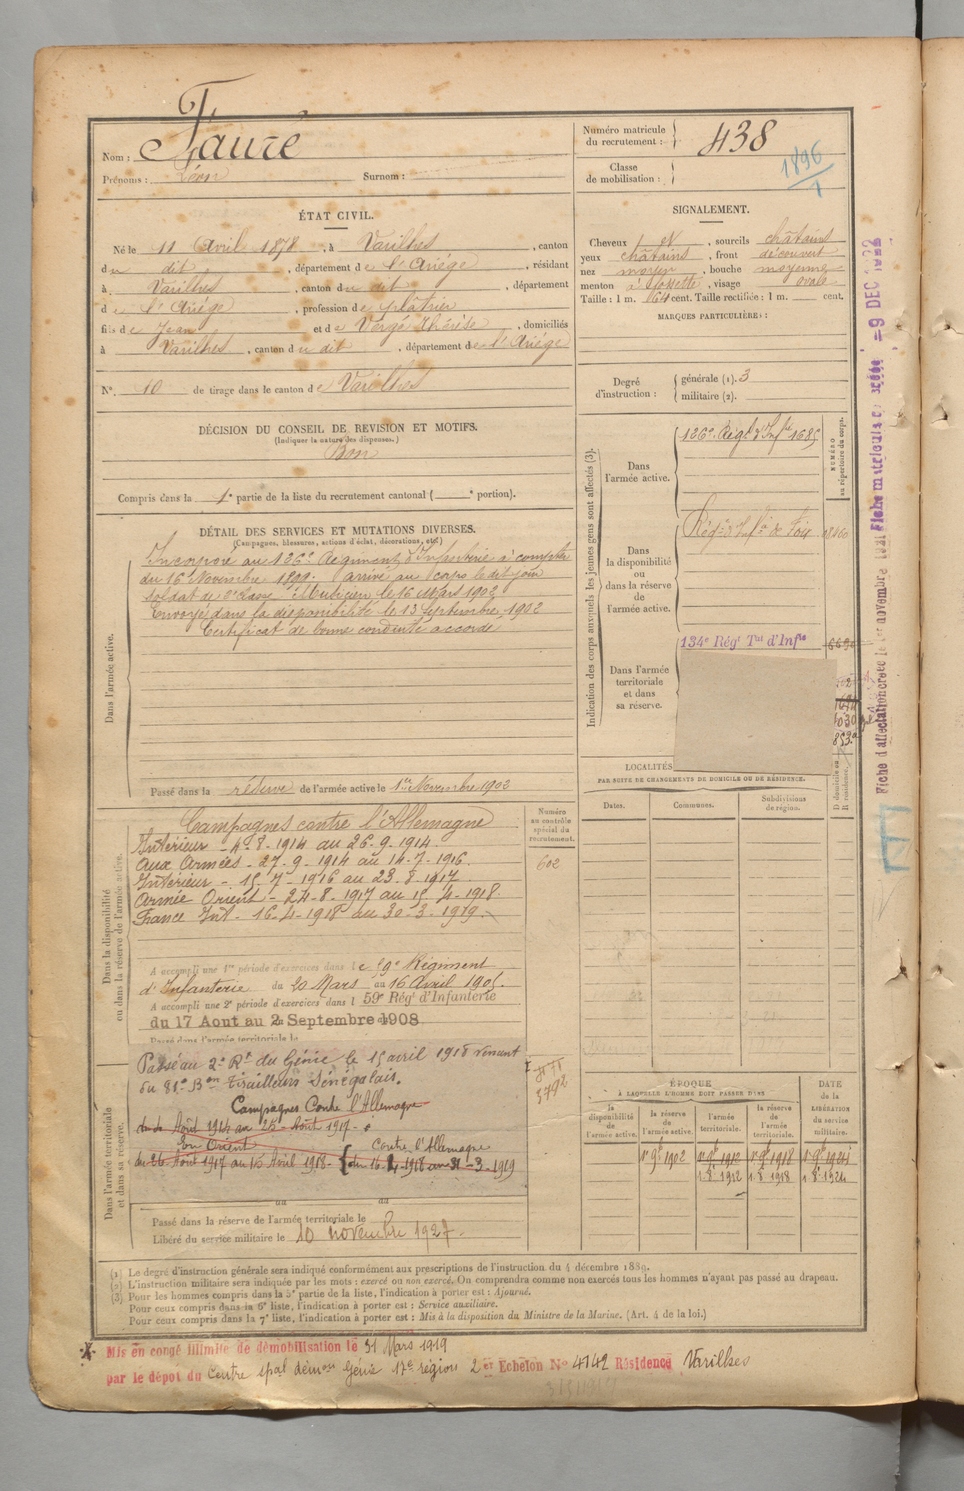 Nom : Faure
Prénoms : Léon Surnom :
Numéro matricule du recrutement : 438
Classe de mobilisation : 1896
ÉTAT CIVIL.
Né le 11 Avril 1878, à Varilhes, canton
du dit, département de l'Ariége, résidant
à Varilhes, canton du dit, département
de l'Ariége, profession de plâtrier
fils de Jean et de Vergé Thérèse, domiciliés
à Varilhes, canton du dit, département de l'Ariége
N° 10 de tirage dans le canton de Varilhes
DÉCISION DU CONSEIL DE REVISION ET MOTIFS.
(Indiquer la nature des dispenses.)
Bon
Compris dans la 1e partie de la liste du recrutement cantonal ( e portion).
SIGNALEMENT.
Cheveux et, sourcils châtains
yeux châtains, front découvert
nez moyen, bouche moyenne
menton à fossette, visage ovale
Taille : 1 m. 64 cent. Taille rectifiée : 1 m. cent.
MARQUES PARTICULIÈRES :
Degré d'instruction : générale (1). 3
militaire (2).
DÉTAIL DES SERVICES ET MUTATIONS DIVERSES.
(Campagnes, blessures, actions d'éclat, décorations, etc.)
Dans l'armée active.
Incorporé au 126e Régiment d'Infanterie à compter
du 16 Novembre 1899. Arrivé au corps le dit jour
soldat de 2e classe. Musicien le 16 Mars 1902
Envoyé dans la disponibilité le 13 Septembre 1902
Certificat de bonne conduite accordé
Passé dans la réserve de l'armée active le 1er Novembre 1902
Indication des corps auxquels les jeunes gens sont affectés (3).
NUMÉRO au répertoire du corps.
Dans l'armée active.
126e Régt d'Infie 1685
Dans la disponibilité ou dans la réserve de l'armée active.
Régt d'Infie de Foix
Dans l'armée territoriale et dans sa réserve.
134e Régt Tal d'Infie
853
LOCALITÉS
PAR SUITE DE CHANGEMENTS DE DOMICILE OU DE RÉSIDENCE.
Dates. Communes. Subdivisions de région. D domicile ou R résidence.
Dans la disponibilité ou dans la réserve de l'armée active.
Numéro au contrôle spécial du recrutement.
602
Campagnes contre l'Allemagne
Intérieur - 4-8-1914 au 26-9-1914
Aux Armées - 27-9-1914 au 14-7-1916.
Intérieur - 15-7-1916 au 23-8-1917.
Armée Orient - 24-8-1917 au 15-4-1918.
France Int - 16-4-1918 au 30-3-1919.
A accompli une 1re période d'exercices dans le 59e Régiment
d'Infanterie du 20 Mars au 16 Avril 1905.
A accompli une 2e période d'exercices dans l 59e Régt d'Infanterie
du 17 Aout au 2 Septembre 1908
Dans l'armée territoriale et dans sa réserve.
Passé au 2e Rt du Génie le 15 avril 1918 venant
du 81e Bon Tirailleurs Sénégalais.
Campagnes Contre l'Allemagne
Août 1914 au 25 Août 1917
En Orient
du 26 Août 1917 au 15 Avril 1918 - Contre l'Allemagne
du 16-4-1918 au 31-3-1919
3792
Passé dans la réserve de l'armée territoriale le
Libéré du service militaire le 10 novembre 1927.
ÉPOQUE
À LAQUELLE L'HOMME DOIT PASSER DANS
la disponibilité de l'armée active. la réserve de l'armée active. l'armée territoriale. la réserve de l'armée territoriale.
DATE de la LIBÉRATION du service militaire.
1er 9bre 1902 1er 9bre 1912 1er 9bre 1918 1er 9bre 1924
1 8 1912 1 8 1918 1 8 1924
(1) Le degré d'instruction générale sera indiqué conformément aux prescriptions de l'instruction du 4 décembre 1889.
(2) L'instruction militaire sera indiquée par les mots : exercé ou non exercé. On comprendra comme non exercés tous les hommes n'ayant pas passé au drapeau.
(3) Pour les hommes compris dans la 5e partie de la liste, l'indication à porter est : Ajourné.
Pour ceux compris dans la 6e liste, l'indication à porter est : Service auxiliaire.
Pour ceux compris dans la 7e liste, l'indication à porter est : Mis à la disposition du Ministre de la Marine. (Art. 4 de la loi.)
Mis en congé illimité de démobilisation le 31 Mars 1919
par le dépot du Centre spal démon Génie 17e région 2 er Echelon No 4142 Résidence Varilhes
Fiche d'affectation créée le 1er novembre 1921 Fiche matricule créée - 9 DEC 1922